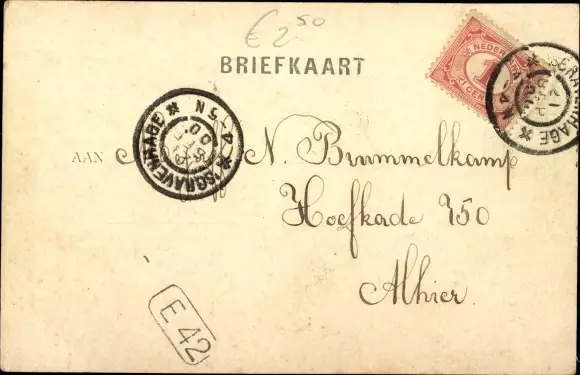 € 2.50
BRIEFKAART
NEDERLAND
1 CENT
'SGRAVENHAGE
4-5N
'SGRAVENHAGE
AAN
N. Brummelkamp
Hoefkade 750
Alhier.
E 42